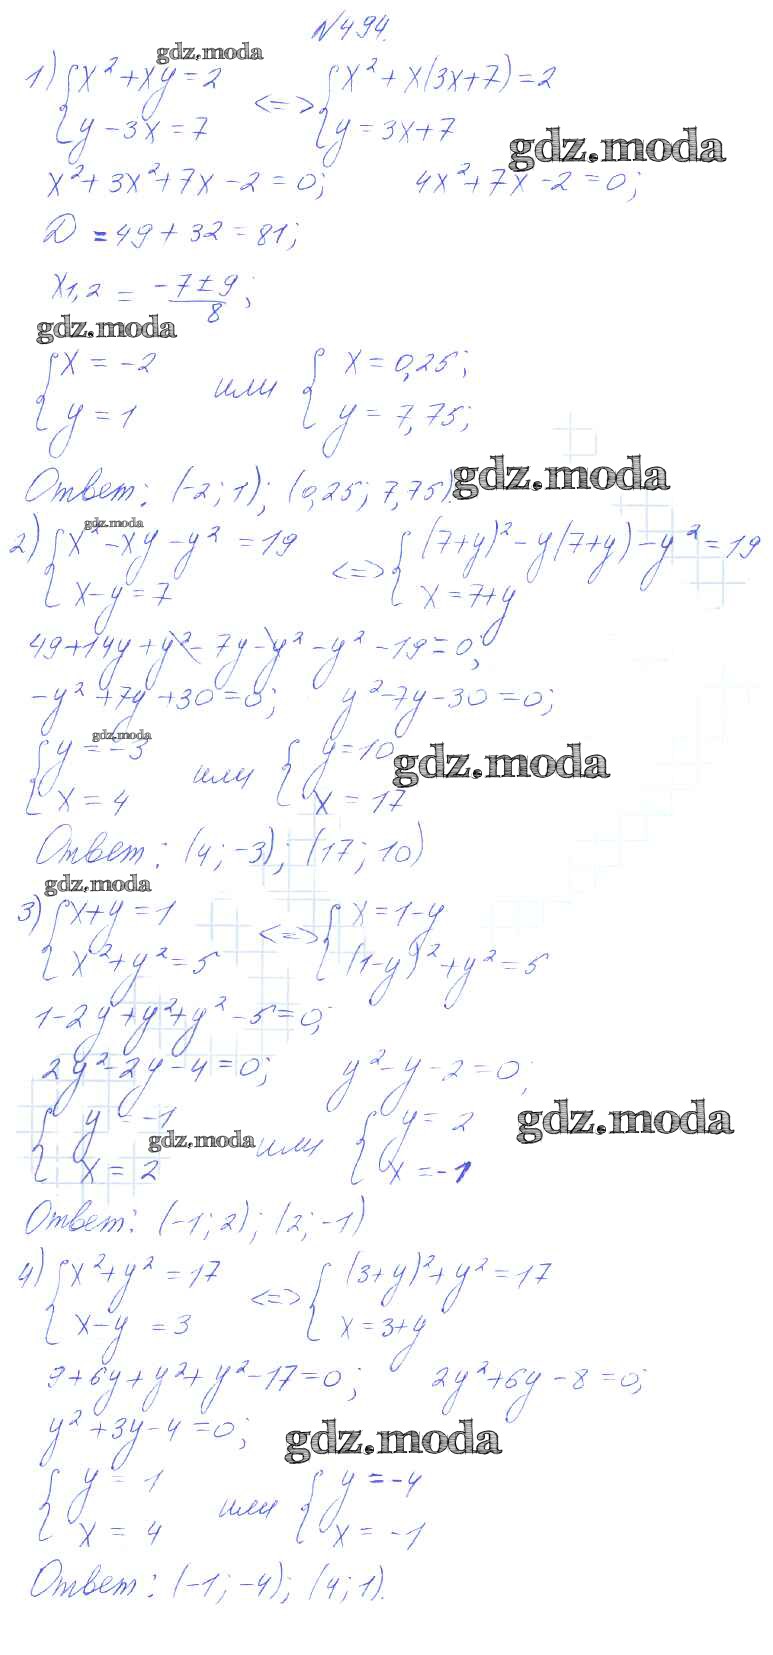 №494.
gdz.moda
1) { x² + xy = 2 <=> { x² + x(3x+7) = 2
y - 3x = 7 y = 3x+7
gdz.moda
x² + 3x² + 7x - 2 = 0; 4x² + 7x - 2 = 0;
D = 49 + 32 = 81;
x1,2 = (-7 ± 9)/8;
gdz.moda
{ x = -2 или { x = 0,25;
y = 1 y = 7,75;
Ответ: (-2; 1); (0,25; 7,75).
gdz.moda
gdz.moda
2) { x² - xy - y² = 19 <=> { (7+y)² - y(7+y) - y² = 19
x - y = 7 x = 7+y
49 + 14y + y² - 7y - y² - y² - 19 = 0;
-y² + 7y + 30 = 0; y² - 7y - 30 = 0;
gdz.moda
{ y = -3 или { y = 10
x = 4 x = 17
gdz.moda
Ответ: (4; -3); (17; 10)
gdz.moda
3) { x + y = 1 <=> { x = 1-y
x² + y² = 5 (1-y)² + y² = 5
1 - 2y + y² + y² - 5 = 0;
2y² - 2y - 4 = 0; y² - y - 2 = 0;
{ y = -1 или { y = 2
x = 2 x = -1
gdz.moda
gdz.moda
Ответ: (-1; 2); (2; -1)
4) { x² + y² = 17 <=> { (3+y)² + y² = 17
x - y = 3 x = 3+y
9 + 6y + y² + y² - 17 = 0; 2y² + 6y - 8 = 0;
y² + 3y - 4 = 0;
gdz.moda
{ y = 1 или { y = -4
x = 4 x = -1
Ответ: (-1; -4); (4; 1).